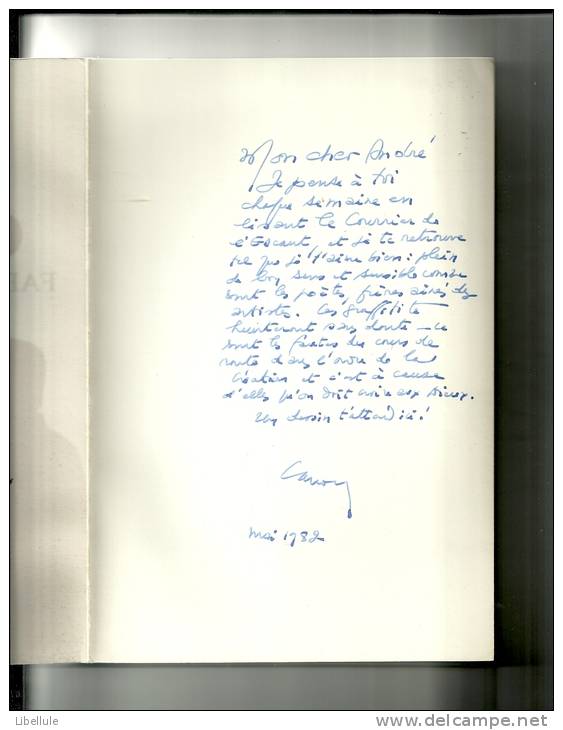 Mon cher André
Je pense à toi
chaque semaine en
lisant le Courrier de
l'Escaut, et je te retrouve
tel que je t'aime bien : plein
de bon sens et sensible comme
sont les poètes, frères aînés des
artistes. Ces graffiti te
heurteront sans doute — ce
sont les fautes du cours de
route dans l'ordre de la
Création et c'est à cause
d'elles qu'on doit croire aux Dieux.
Un dessin t'attend ici !
mai 1982
FA
Libellule
www.delcampe.net